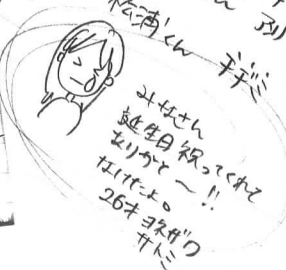 松浦くん
みなさん
誕生日祝ってくれて
ありがと〜!!
なけたよ。
26才 ヨネザワ
サトミ